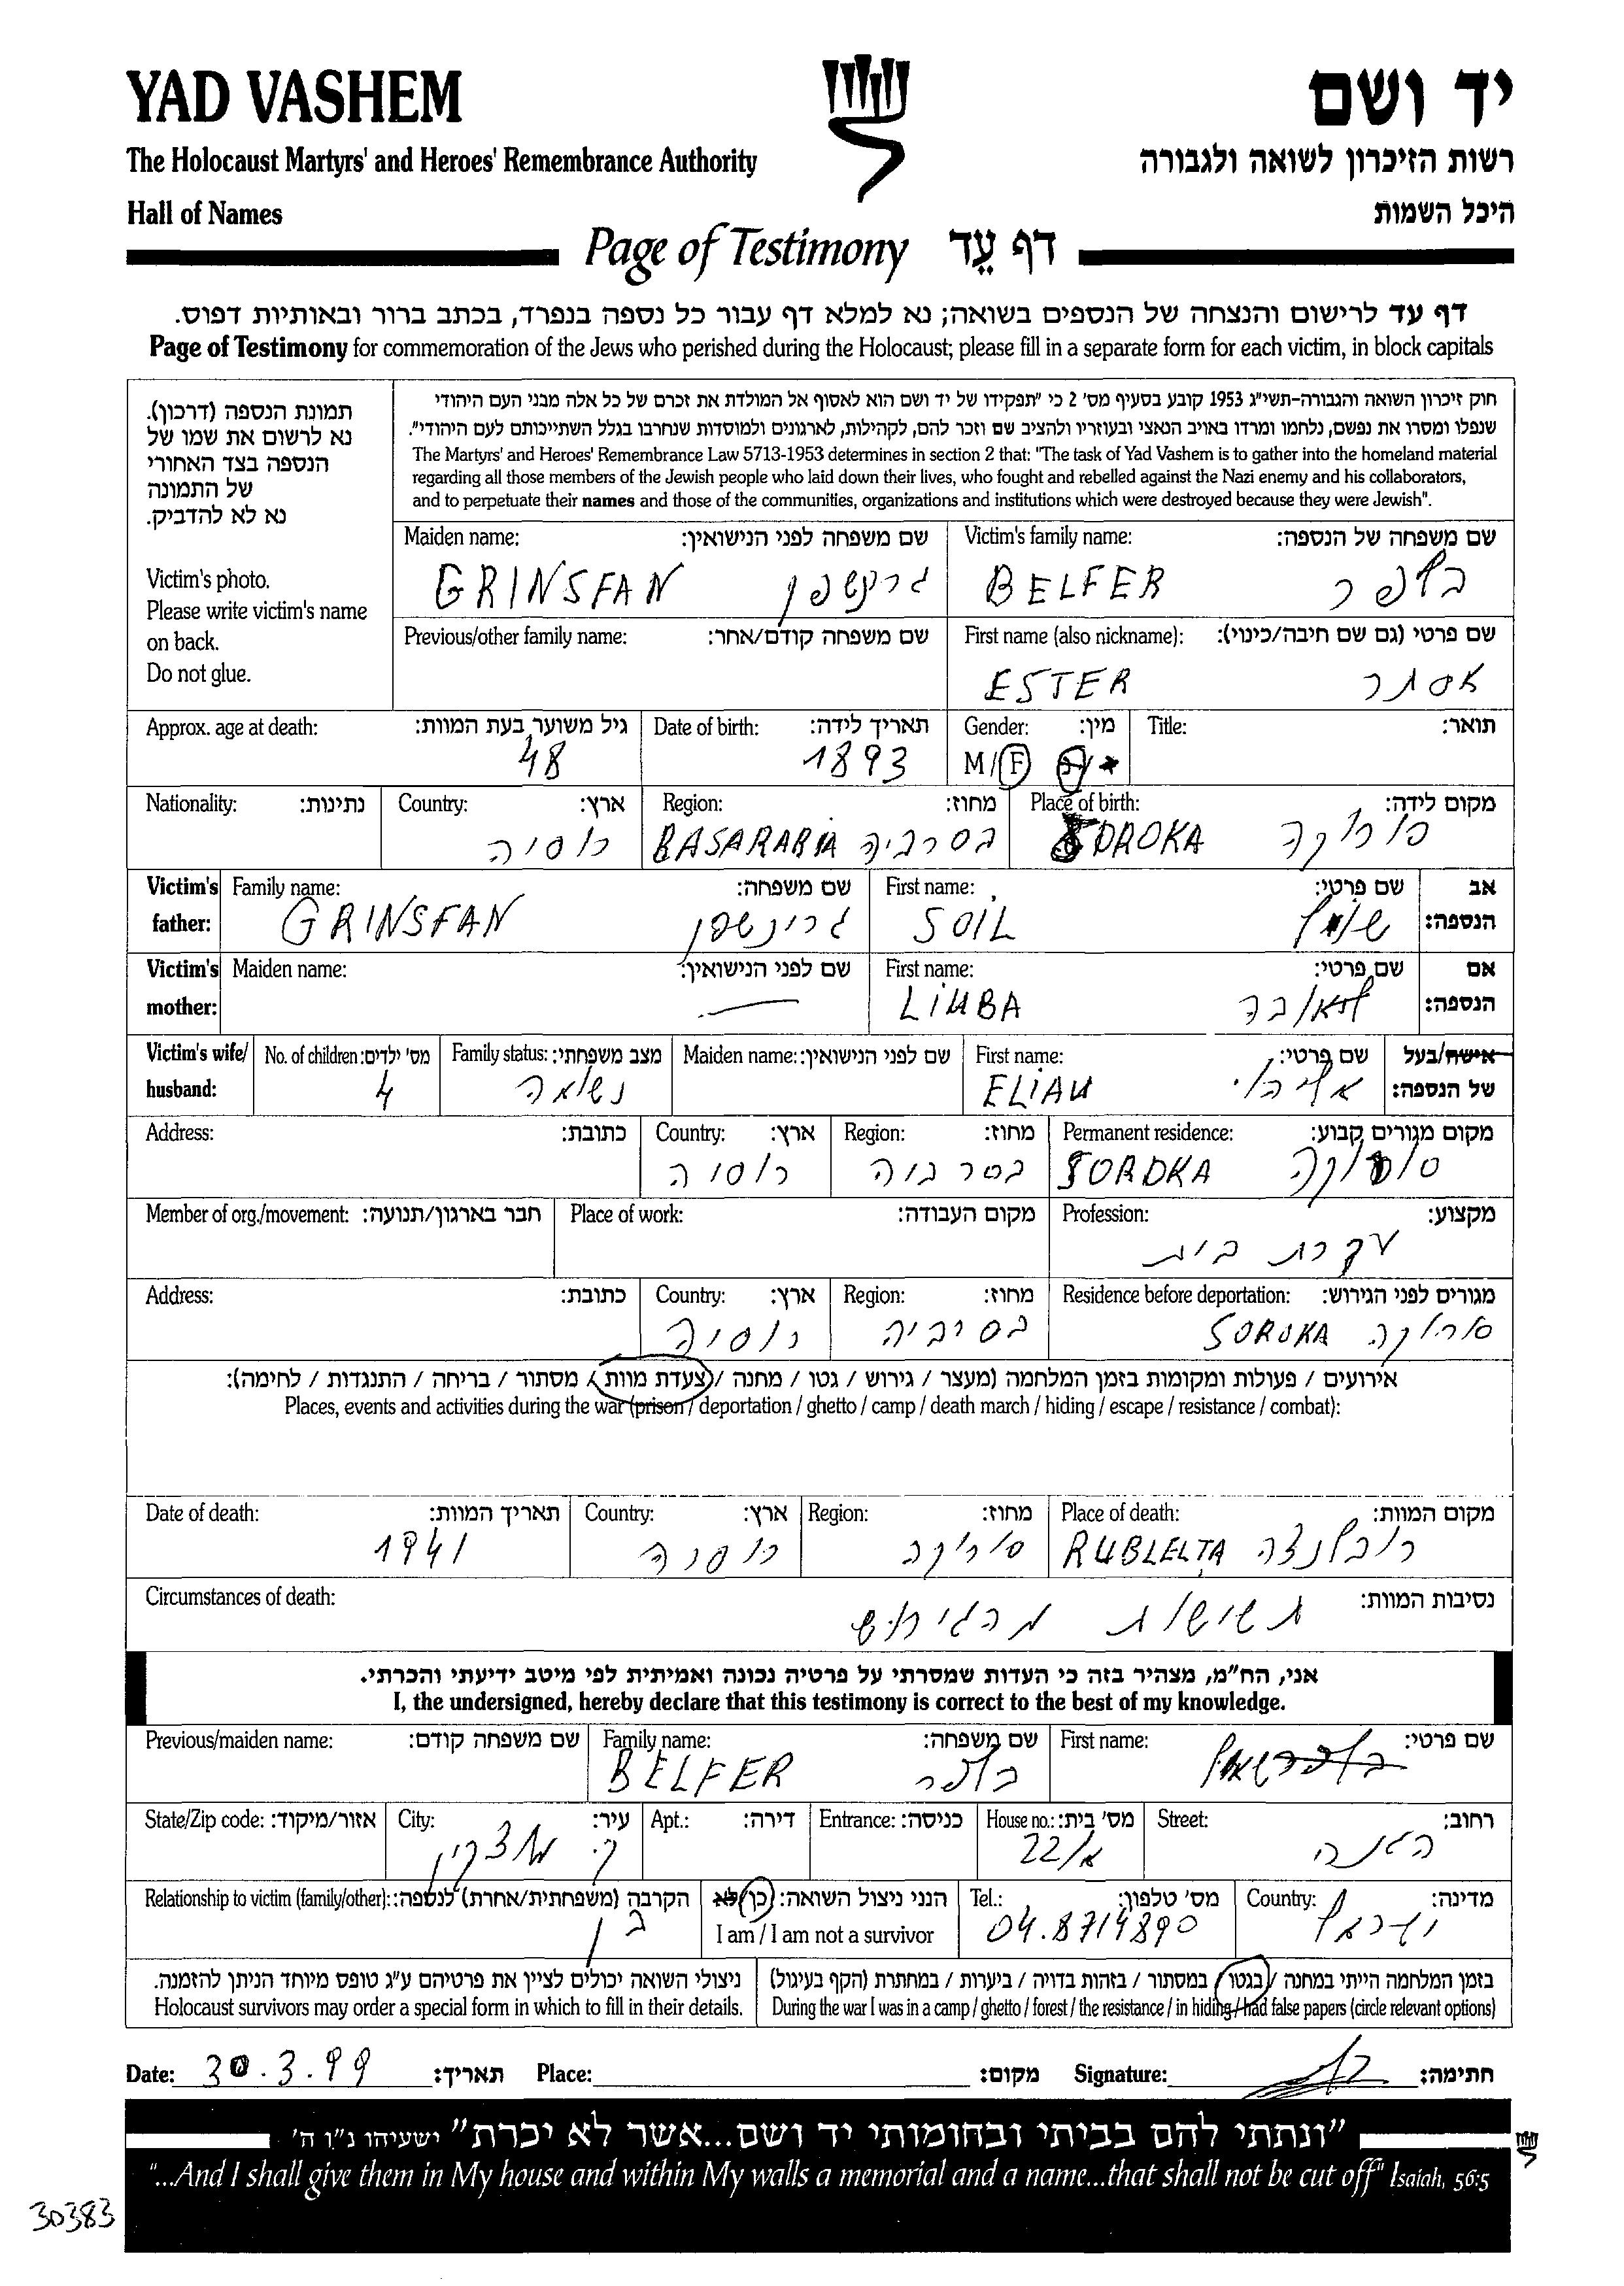 YAD VASHEM
יד ושם
The Holocaust Martyrs' and Heroes' Remembrance Authority
רשות הזיכרון לשואה ולגבורה
Hall of Names
היכל השמות
Page of Testimony דף עֵד
דף עד לרישום והנצחה של הנספים בשואה; נא למלא דף עבור כל נספה בנפרד, בכתב ברור ובאותיות דפוס.
Page of Testimony for commemoration of the Jews who perished during the Holocaust; please fill in a separate form for each victim, in block capitals
תמונת הנספה (דרכון).
נא לרשום את שמו של
הנספה בצד האחורי
של התמונה
נא לא להדביק.
Victim's photo.
Please write victim's name
on back.
Do not glue.
חוק זיכרון השואה והגבורה-תשי"ג 1953 קובע בסעיף מס' 2 כי "תפקידו של יד ושם הוא לאסוף אל המולדת את זכרם של כל אלה מבני העם היהודי
שנפלו ומסרו את נפשם, נלחמו ומרדו באויב הנאצי ובעוזריו ולהציב שם וזכר להם, לקהילות, לארגונים ולמוסדות שנחרבו בגלל השתייכותם לעם היהודי".
The Martyrs' and Heroes' Remembrance Law 5713-1953 determines in section 2 that: "The task of Yad Vashem is to gather into the homeland material
regarding all those members of the Jewish people who laid down their lives, who fought and rebelled against the Nazi enemy and his collaborators,
and to perpetuate their names and those of the communities, organizations and institutions which were destroyed because they were Jewish".
Maiden name: שם משפחה לפני הנישואין: Victim's family name: שם משפחה של הנספה:
GRINSFAN גרינשפן BELFER בלפר
Previous/other family name: שם משפחה קודם/אחר: First name (also nickname): שם פרטי (גם שם חיבה/כינוי):
ESTER אסתר
Approx. age at death: גיל משוער בעת המוות: Date of birth: תאריך לידה: Gender: מין: Title: תואר:
48 1893 M/F
Nationality: נתינות: Country: ארץ: Region: מחוז: Place of birth: מקום לידה:
רוסיה BASARABIA בסרביה SOROKA סורוקה
Victim's father: Family name: שם משפחה: First name: שם פרטי: אב הנספה:
GRINSFAN גרינשפן SOIL
Victim's mother: Maiden name: שם לפני הנישואין: First name: שם פרטי: אם הנספה:
— LIUBA ליאובה
Victim's wife/ husband: No. of children: מס' ילדים: Family status: מצב משפחתי: Maiden name: שם לפני הנישואין: First name: שם פרטי: אישה/בעל של הנספה:
4 נשואה ELIAU אליהו
Address: כתובת: Country: ארץ: Region: מחוז: Permanent residence: מקום מגורים קבוע:
רוסיה בסרביה SOROKA סורוקה
Member of org./movement: חבר בארגון/תנועה: Place of work: מקום העבודה: Profession: מקצוע:
עקרת בית
Address: כתובת: Country: ארץ: Region: מחוז: Residence before deportation: מגורים לפני הגירוש:
רוסיה בסרביה SOROKA סורוקה
אירועים / פעולות ומקומות בזמן המלחמה (מעצר / גירוש / גטו / מחנה / צעדת מוות / מסתור / בריחה / התנגדות / לחימה):
Places, events and activities during the war (prison / deportation / ghetto / camp / death march / hiding / escape / resistance / combat):
Date of death: תאריך המוות: Country: ארץ: Region: מחוז: Place of death: מקום המוות:
1941 רוסיה סורוקה RUBLELTA רובלנצה
Circumstances of death: נסיבות המוות:
תשישות מהגירוש
אני, הח"מ, מצהיר בזה כי העדות שמסרתי על פרטיה נכונה ואמיתית לפי מיטב ידיעתי והכרתי.
I, the undersigned, hereby declare that this testimony is correct to the best of my knowledge.
Previous/maiden name: שם משפחה קודם: Family name: שם משפחה: First name: שם פרטי:
BELFER בלפר
State/Zip code: אזור/מיקוד: City: עיר: Apt.: דירה: Entrance: כניסה: House no.: מס' בית: Street: רחוב:
ק. מוצקין 22/א ההגנה
Relationship to victim (family/other): הקרבה (משפחתית/אחרת) לנספה: הנני ניצול השואה: כן/לא Tel.: מס' טלפון: Country: מדינה:
בן I am / I am not a survivor 04.8714890 ישראל
ניצולי השואה יכולים לציין את פרטיהם ע"ג טופס מיוחד הניתן להזמנה. בזמן המלחמה הייתי במחנה / בגטו / במסתור / בזהות בדויה / ביערות / במחתרת (הקף בעיגול)
Holocaust survivors may order a special form in which to fill in their details. During the war I was in a camp / ghetto / forest / the resistance / in hiding / had false papers (circle relevant options)
Date: 30.3.99 תאריך: Place: מקום: Signature: חתימה:
"ונתתי להם בביתי ובחומותי יד ושם...אשר לא יכרת" ישעיהו נ"ו ה'
"...And I shall give them in My house and within My walls a memorial and a name...that shall not be cut off" Isaiah, 56:5
30383